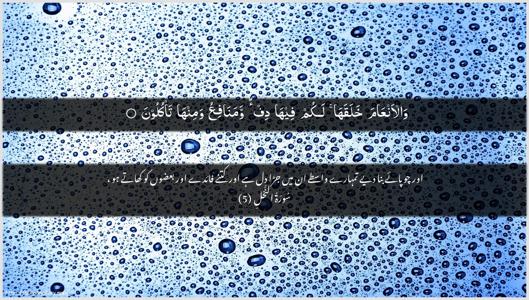 وَالۡاَنۡعَامَ خَلَقَهَا ۚ لَـكُمۡ فِيۡهَا دِفۡ ٴٌ وَّمَنَافِعُ وَمِنۡهَا تَاۡكُلُوۡنَ ۞
اور چوپائے بنا دیے تمہارے واسطے ان میں جڑاول ہے اور کتنے فائدے اور بعضوں کو کھاتے ہو ۔
سُوۡرَةُ النَّحۡل (5)